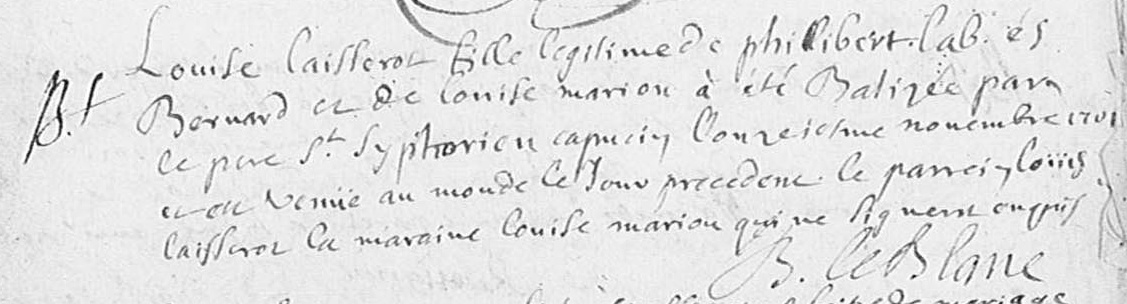 Louise laisserot fille legitime de philibert. lab. és
B.t Bernard et de louise marion à été Batizée par
le pere St. Syphorien capucin l'onzeiesme novembre 1701
et est venüe au monde le Jour precedent. le parrein loüis
laisserot la maraine louise marion qui ne signent enquis
B. leBlanc